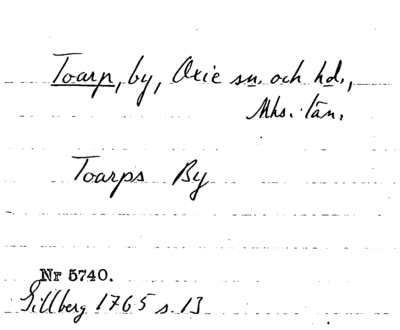 Toarp, by, Oxie sn. och hd.,
Mhs. län.
Toarps By
Nr 5740.
Gillberg 1765 s. 13